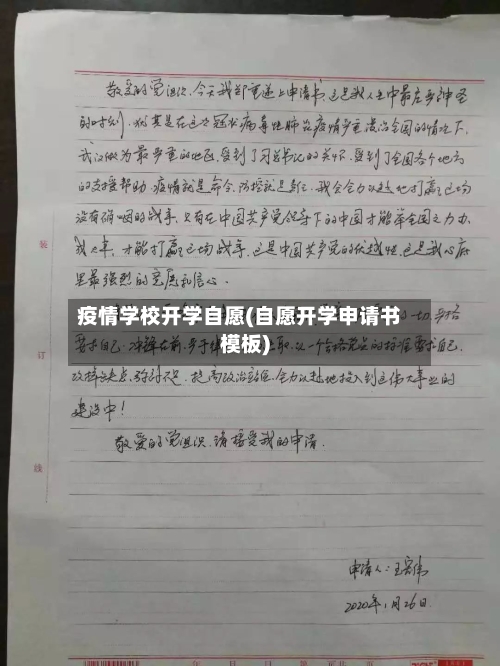 敬爱的党组织，今天我郑重递上申请书，这是我人生中最庄严神圣
的时刻，尤其是在这次冠状病毒性肺炎疫情严重波及全国的情况下，
武汉做为最严重的地区，受到了习总书记的关怀，受到了全国各个地方
的支援帮助，疫情就是命令，防控就是责任，我会全力以赴地打赢这场
没有硝烟的战争，只有在中国共产党领导下的中国才能举全国之力，办
大事，才能打赢这场战争，这是中国共产党的优越性，这是我心底
里最强烈的意愿和信心。
疫情学校开学自愿(自愿开学申请书
模板)
一切，严格
要求自己，冲锋在前，以一个合格党员的标准要求自己，
改掉缺点，弥补不足，提高政治站位，全力以赴地投入到这伟大事业的
建设中！
敬爱的党组织，请接受我的申请．
装
订
线
申请人：王
2020年1月26日